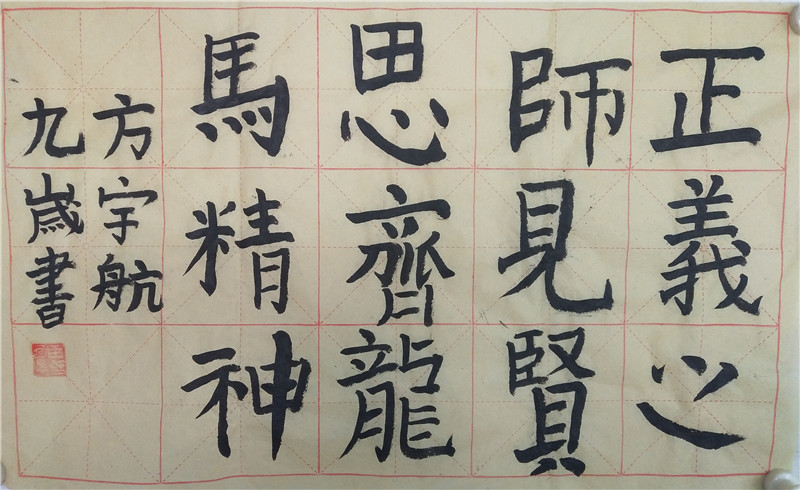 正義之
師見賢
思齊龍
馬精神
方宇航
九歲書